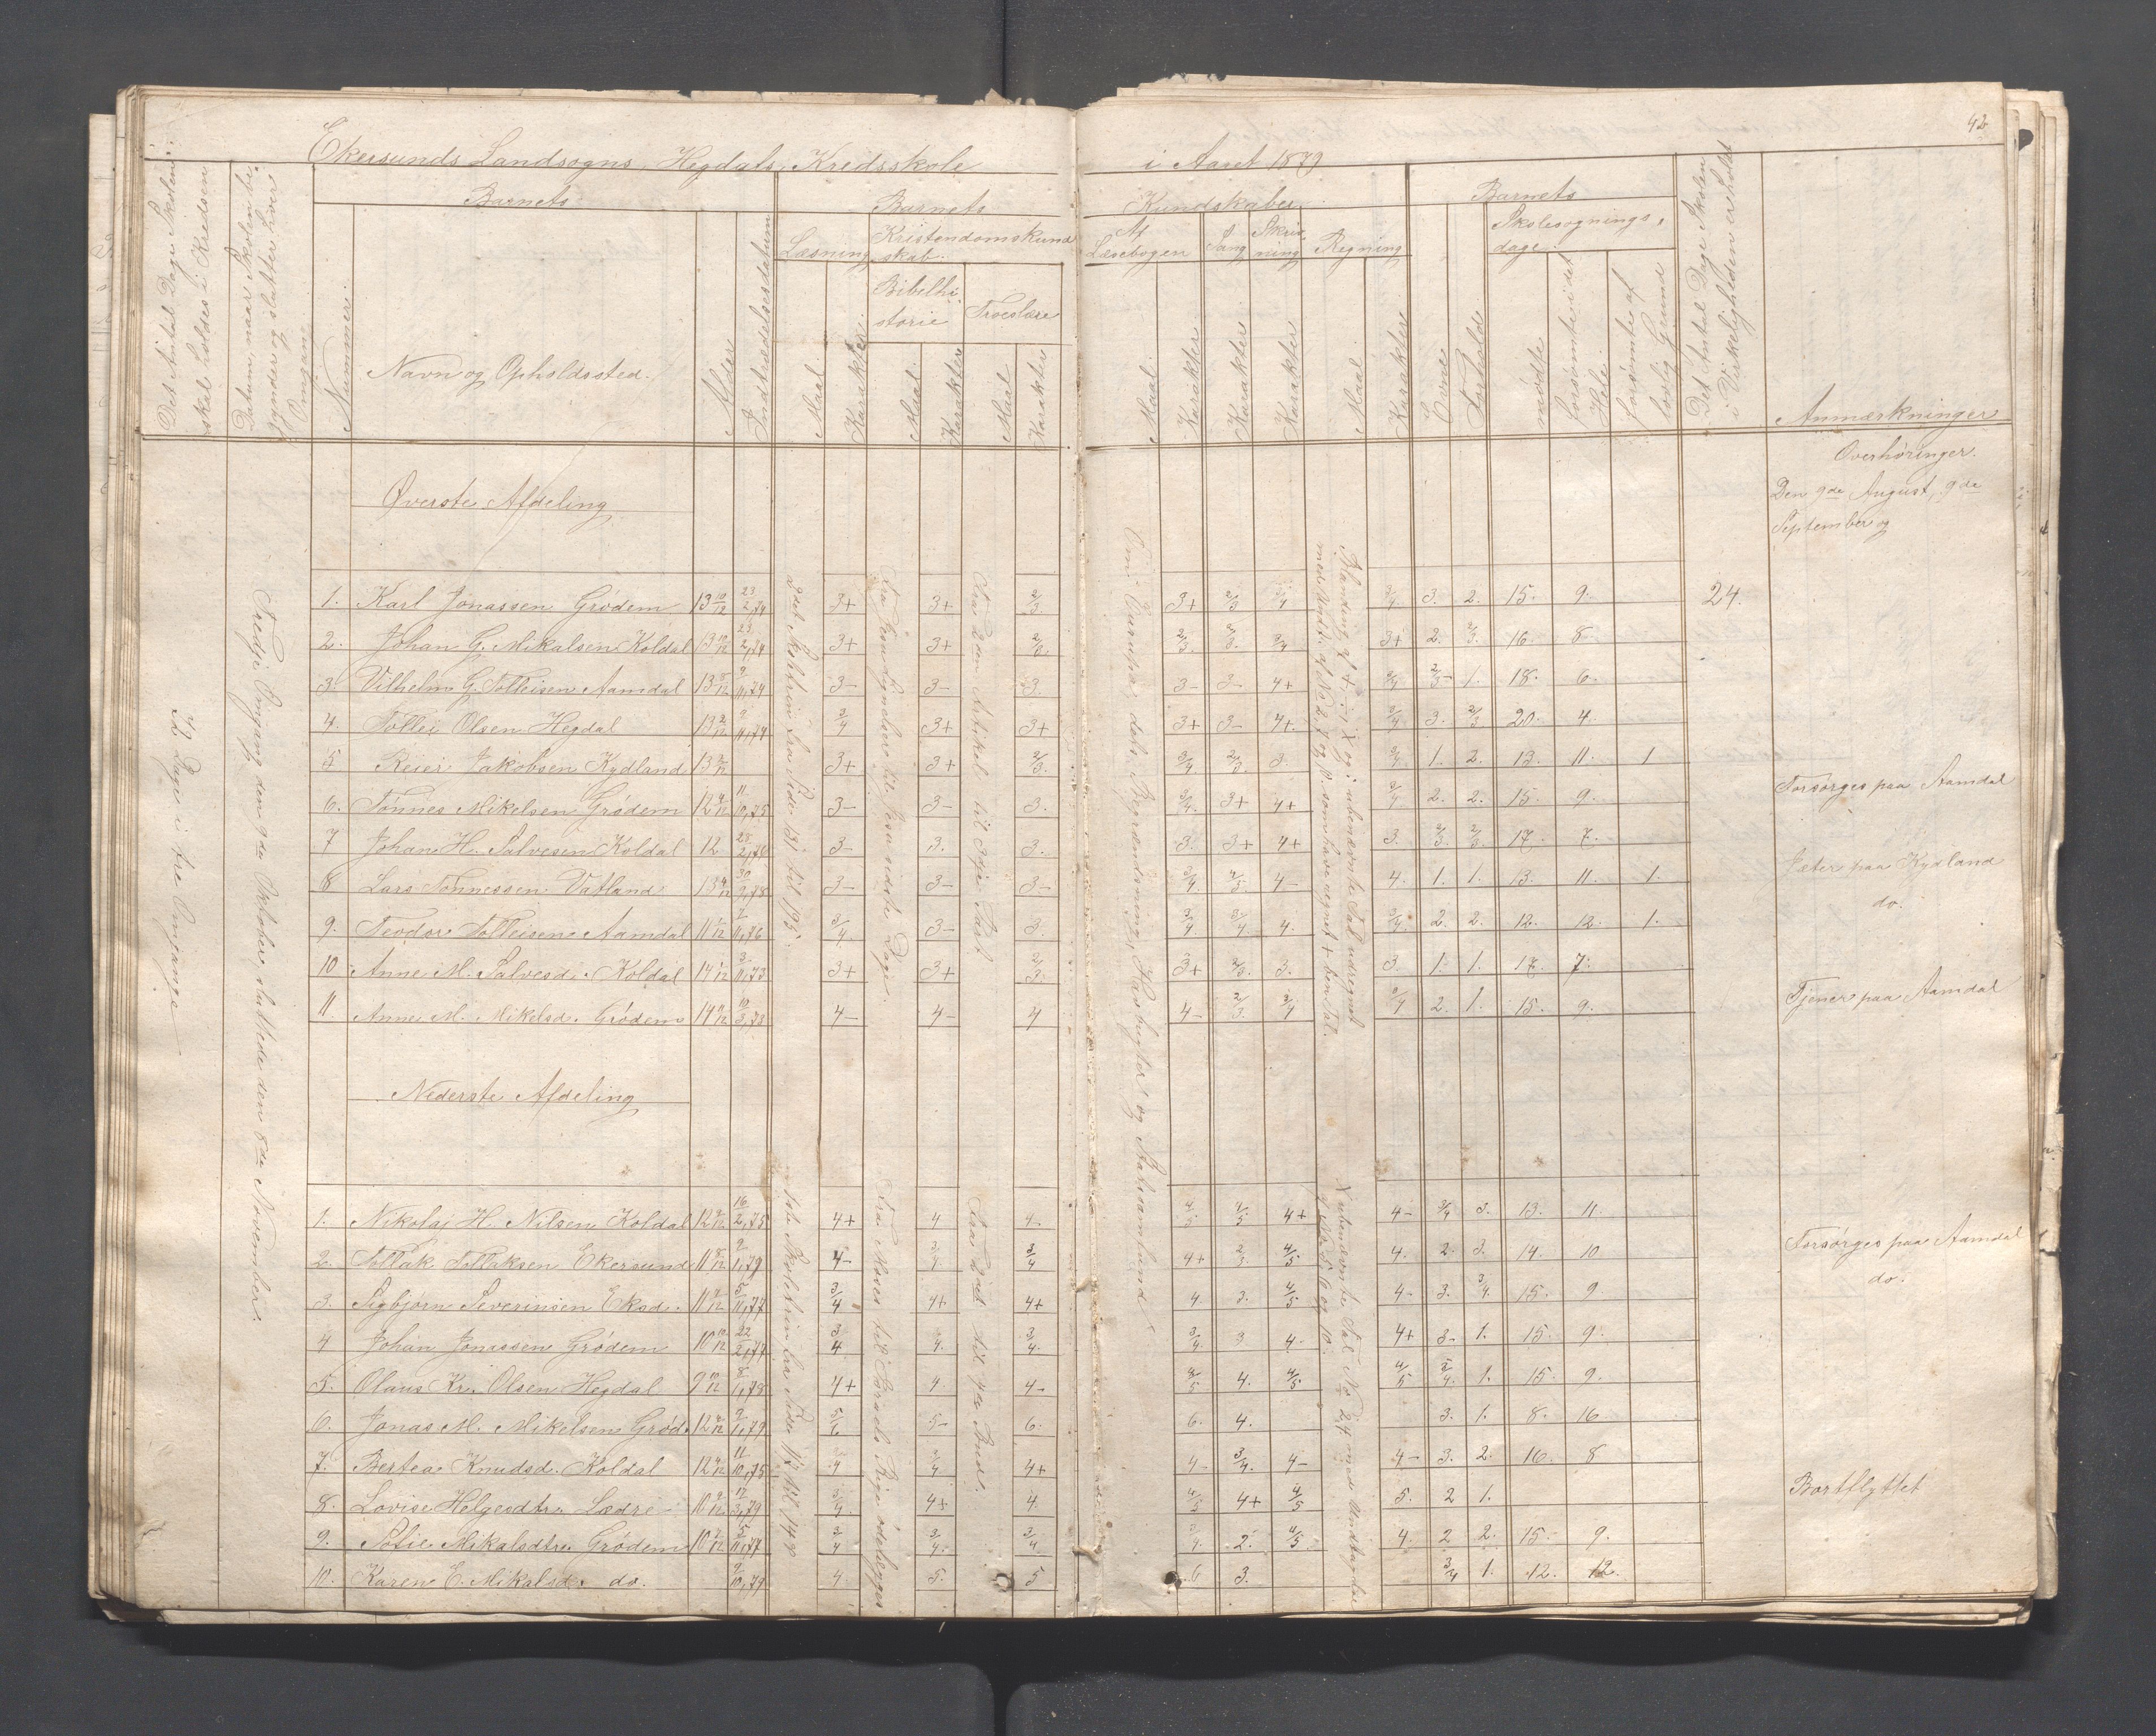 42
Ekersunds Landsogns, Hegdals, Kredsskole i Aaret 1879
Det Antal Dage Skolen skal holdes i Kredsen
Datum, naar Skolen begynder og slutter hver Omgang
Nummer
Barnets
Navn og Opholdssted.
Alder
Indtrædelsesdatum
Barnets Kundskaber
Læsning
Kristendomskundskab.
Bibelhistorie
Troeslære
Af Læsebogen
Sang
Skrivning
Regning
Maal
Karakter
Maal
Karakter
Maal
Karakter
Maal
Karakter
Karakter
Karakter
Maal
Karakter
Barnets
Evne
Forhold
Skolesøgningsdage
mødte
forsømte i det Hele
forsømte af lovlig Grund
Det Antal Dage Skolen i Virkeligheden er holdt
Anmærkninger
Overhøringer.
Den 9de August, 9de
September og
Øverste Afdeling
1. Karl Jonassen Grødem 13 10/12 23/2,74 3+ 3+ 2/3 3+ 2/3 3/4 3/4 3. 2. 15. 9. 24.
2. Johan G. Mikalsen Koldal 13 10/12 23/2,74 3+ 3+ 2/3 2/3. 2/3. 3/4 3+ 2. 2/3. 16. 8.
3. Vilhelm G. Tolleisen Aamdal 13 8/12 9/11,74 3- 3- 3. 3- 3- 4+ 3/4 2/3- 1. 18. 6.
4. Tollei Olsen Hegdal 13 2/12 9/11,74 3/4 3+ 3+ 3+ 3- 4+. 3/4 3. 2/3 20. 4.
5 Reier Jakobsen Kydland 13 3/12 3+ 3+ 2/3. 3/4. 2/3. 3. 3/4 1. 2. 13. 11. 1
6. Tønnes Mikelsen Grødem 12 4/12 11/10,75 3- 3- 3. 3/4. 3+ 4+ 3/4 2. 2. 15. 9. Forsørges paa Aamdal
7 Johan H. Salvesen Koldal 12 23/2,74 3- 3. 3. 3. 3+ 4+ 3. 2/3 2/3 17. 7.
8 Lars Tønnessen Vatland 13 4/12 30/9,78 3- 3- 3- 3/4. 4/5. 4- 4. 1. 1. 13. 11. 1. Jæter paa Kydland
9. Teodor Tolleisen Aamdal 11 1/12 7/11,76 3/4. 3- 3. 3/4 3/4. 4. 3/4 2. 2. 12. 12. 1. do.
10 Anne M. Salvesd. Koldal 14 1/12 3/11,73 3+ 3+ 2/3 3+ 2/3. 3. 3. 1. 1. 17. 7.
11. Anne M. Mikelsd. Grødem 14 9/12 10/3,73 4- 4- 4 4- 2/3. 3/4 3/4 2. 1. 15. 9. Tjener paa Aamdal
Nederste Afdeling
1. Nikolai H. Nilsen Koldal 12 9/12 16/2,75 4+ 4 4- 4/5 4/5 4+ 4- 3/4 3. 13. 11.
2. Tollak Tollaksen Ekersund 11 8/12 9/1,79 4- 3/4 3/4 4+ 2/3. 4/5 4. 2. 3. 14. 10 Forsørges paa Aamdal
3. Sigbjørn Severinsen Eksd. 11 7/12 5/11,77 3/4 4+ 4+ 4. 3. 4/5 4- 3. 3/4. 15. 9 do.
4 Johan Jonassen Grødem 10 10/12 22/2,77 3/4 4. 3/4. 3/4. 3 4- 4+ 3- 1. 15. 9.
5. Olaus Kr. Olsen Hegdal 9 10/12 8/1,78 4+ 4. 4- 4/5 4. 4/5 4/5 3/4. 1. 15. 9.
6. Jonas M. Mikelsen Grød. 12 4/12 9/1,79 5/6 5- 6. 6. 4. 3. 1. 8. 16
7. Bertea Knudsd. Koldal 12 4/12 11/10,75 3/4 3/4 4+ 4- 3/4. 4- 4- 3. 2. 16. 8
8. Lovise Helgesdtr. Lædre 10 9/12 17/3,79 3/4. 4+ 4. 4/5 4+ 4/5 5. 2 1. Bortflyttet
9. Sofie Mikalsdtr. Grødem 10 7/12 5/11,77 3/4 3/4. 3/4. 3/4. 2. 4/5 4. 2 2. 15. 9.
10. Karen E. Mikalsd. do. 9/10,79 4. 5. 5 6 3. 3/4 1. 12. 12.
Tredje Omgang den 9de Oktober, sluttede den 8de November.
Dage i tre Omgange
2det Skoletrin fra Side til 195.
Fra til Jesu sidste Dage.
Fra Den Artikel til 3dje Part
Om Europa, dets Begrændsning, Havbugter og Staksamfund
Blanding af +, -, X og : ubenævnte Tal udregnet
med Undt. af No 2, 7 og 10. som have regnet + ben. Tal.
1ste Skoletrin fra Side 117 til 148
Fra Moses til Israels Rige ødelægges
Fra Daab til 4de Bud.
4 ubenævnte Tal No 24 med Undtagelse
af No 5. 6 og 10.